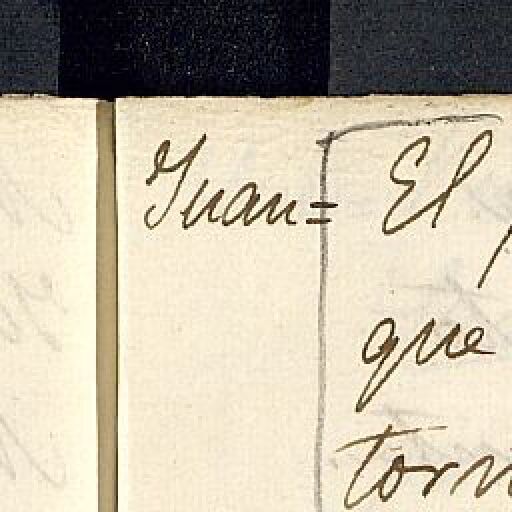 Juan= El
que
torn